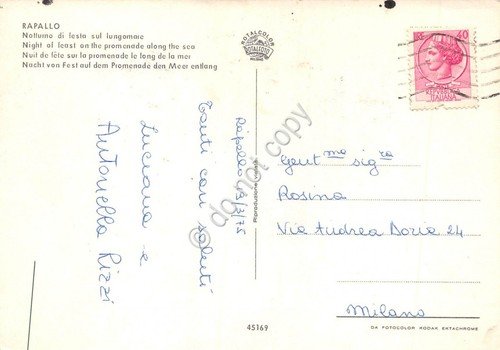 RAPALLO
Notturno di festa sul lungomare
Night of feast on the promenade along the sea
Nuit de fête sur la promenade le long de la mer
Nacht von Fest auf dem Promenade den Meer entlang
ROTALCOLOR
ROTALFOTO
MILANO
40
ITALIANA
Rapallo
Tanti cari saluti
Luciana e
Antonella Rizzi
Riproduzione vietata
Gent ma sig ra
Rosina
Via Andrea Doria 24
Milano
45169
DA FOTOCOLOR KODAK EKTACHROME
do not copy